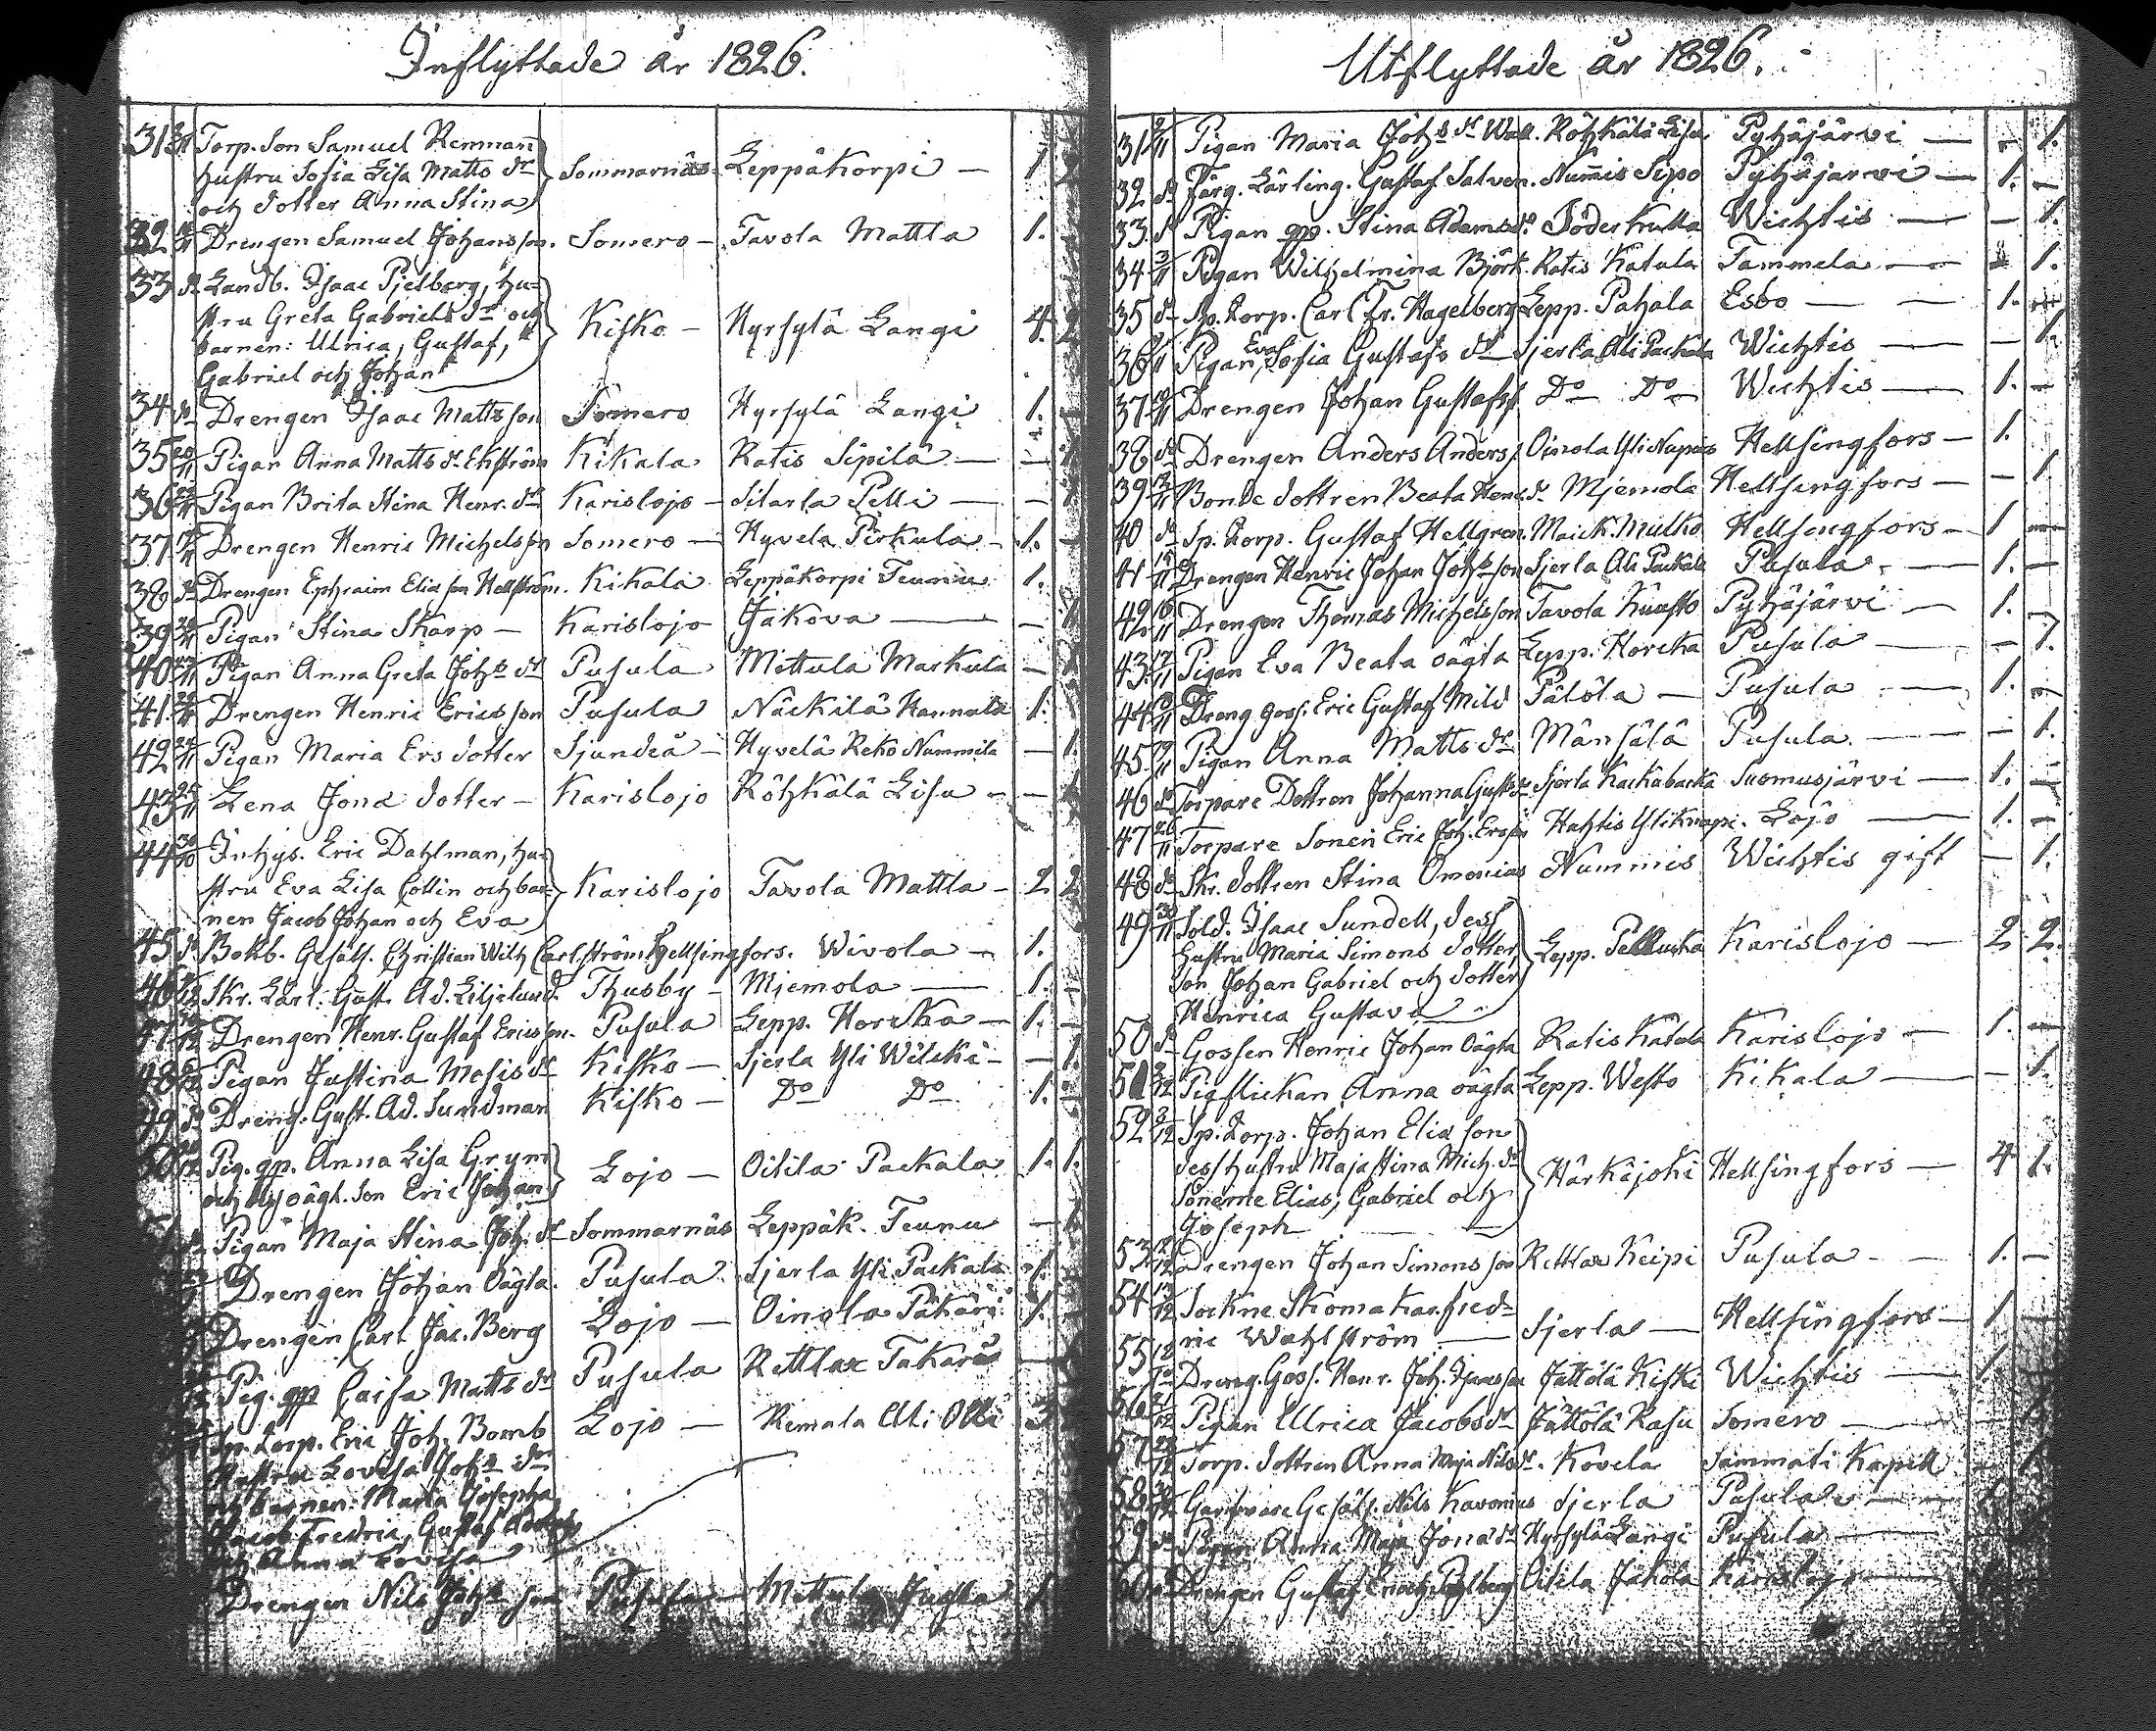 Inflyttade år 1826.
31 Torp. Son Samuel Remman
hustru Sofia Lisa Matts dr Sommarnäs Leppäkorpi — 1
och dotter Anna Stina
32 Drengen Samuel Johansson. Somero — Tavola Mattla 1.
33 do Landb. Isaac Pjelberg, hu-
stru Greta Gabriels dr och Kisko — Hyrsylä Langi 4. 2
barnen: Ulrica, Gustaf,
Gabriel och Johan
34 do Drengen Isaac Mattsson Somero Hyrsylä Langi 1. —
35 20/11 Pigan Anna Matts dr Ekström Kikala Ratis Sipilä — — 1
36 Pigan Brita Stina Henr. dr Karislojo — Sitarla Pelli — — 1
37 Drengen Henric Michelsson Somero — Hyvela Pirkula — 1. —
38 do Drengen Ephraim Elias son Hellström. Kikala Leppäkorpi Teunu 1.
39 Pigan Stina Skarp — Karislojo Jakova — — 1
40 Pigan Anna Greta Johs dr Pusula Mettula Markula — 1
41 Drengen Henric Ericsson Pusula Näckilä Hannula 1.
42 Pigan Maria Ers dotter Sjundeå — Hyvelä Reko Nummila — 1.
43 Lena Jona dotter — Karislojo Röhkälä Lisu — — 1
44 30/10 Inhys. Eric Dahlman, hu-
stru Eva Lisa Collin och bar- Karislojo Tavola Mattla — 2 2
nen Jacob Johan och Eva
45 do Bokb. Gesäll. Christian Wilh Carlström Hellsingfors. Wivola — 1.
46 Skr. Lärl. Gust. Ad. Liljelund. Thusby — Mjemola — 1. —
47 Drengen Henr. Gustaf Ericsson. Pusula Lepp. Horcka — 1. —
48 Pigan Justina Mosis dr Kisko — Sjerla Yli Wilcki — — 1
49 do Dreng. Gust. Ad. Sundman Kisko — Do Do 1. —
50 Pig. qp. Anna Lisa Grym
och des oägt. Son Eric Johan Lojo — Oitila Packala 1. 1.
Pigan Maja Stina Joh. dr Sommarnäs Leppäk. Teunu — 1
Drengen Johan Oägta. Pusula Sjerla Yli Packala 1.
Drengen Carl Jac. Berg Lojo — Oinola Päkäri 1. —
Pig. qp Caisa Matts dr Pusula Rettlax Takara
Sp. Torp. Eric Joh. Bomb Lojo — Remala Ali Olli 3
Hustru Lovisa Johs dr
och barnen. Maria Josepha,
Jacob Fredric, Gustaf
och Anna Lovisa
Drengen Nils Johs son Pusula — Mettula 1
Utflyttade år 1826.
31 Pigan Maria Johs dr Wall. Röhkälä Lisu Pyhäjärvi — — 1.
32 do Färg. Lärling. Gustaf Salven. Nummis Sipo Pyhäjärvi — 1. —
33. do Pigan qp. Stina Adamsdr Söderkulla Wichtis — — 1.
34 3/11 Pigan Wilhelmina Björk. Ratis Katala Tammela — 1.
35 do Sp. Torp. Carl Fr. Hagelberg Lepp. Pahala Esbo — — 1. —
36 Pigan Eva Sofia Gustafs dr Sjerla Ali Packala Wichtis — — 1.
37 Drengen Johan Gustafss. Do Do Wichtis — 1. —
38 do Drengen Anders Anders s. Oinola Yli Nupis Hellsingfors — 1.
39 Bonde dottren Beata Henr. dr Mjemola Hellsingfors — — 1.
40 do Sp. Torp. Gustaf Hellgren. Maick. Mulko Hellsingfors — 1 —
41 15/11 Drengen Henric Johan Johsson Sjerla Ali Packala Pusula — 1. —
42 16/11 Drengen Thomas Michelsson Tavola Kuusto Pyhäjärvi — 1. —
43. 17/11 Pigan Eva Beata oägta Lepp. Horcka Pusula — — 1.
44 Dreng goss. Eric Gustaf Mild Pälölä — Pusula — 1. —
45 19/11 Pigan Anna Matts dr Mänsälä Pusula — — 1.
46 do Torpare Dottren Johanna Gustsdr Sjerla Kackäbacka Suomusjärvi — 1. —
47 26/11 Torpare Sonen Eric Joh. Ersson Hahtis Yli Knapi. Lojo — 1. —
48 do Skr. dottren Stina Omonias Nummis Wichtis gift — 1.
49 30/11 Sold. Isaac Sundell, dess
hustru Maria Simons dotter, Lepp. Pelluska Karislojo — 2. 2.
Son Johan Gabriel och dotter
Henrica Gustava
50 do Gossen Henric Johan Oägta Ratis Katala Karislojo — 1. —
51 2/12 Pigflickan Anna oägta Lepp. Westo Kikala — — 1.
52 3/12 Sp. Torp. Johan Elias son
dess Hustru Maja Stina Mich. dr Härkäjoki Hellsingfors — 4 1.
Sönerne Elias, Gabriel och
Joseph
53 Drengen Johan Simonsson Rettlax Keipi Pusula — 1. —
54 13/12 Sockne Skomakar. Fred-
ric Wahlström — Sjerla — Hellsingfors — 1. —
55 Dreng. Goss. Henr. Joh. Isaacsson Jättölä Kiski Wichtis — 1.
56 Pigan Ulrica Jacobs dr Jättölä Rasu Somero —
57 Torp. dottren Anna Maja Nils dr. Kovela Sammati Kapell
58 Garfvare Gesäll. Nils Kavonius Sjerla Pusula —
59 do Pigan Anna Maja Jona dr Hyrsylä Langi Pusula —
60 Drengen Gustaf Oitila Jakola Karislojo —